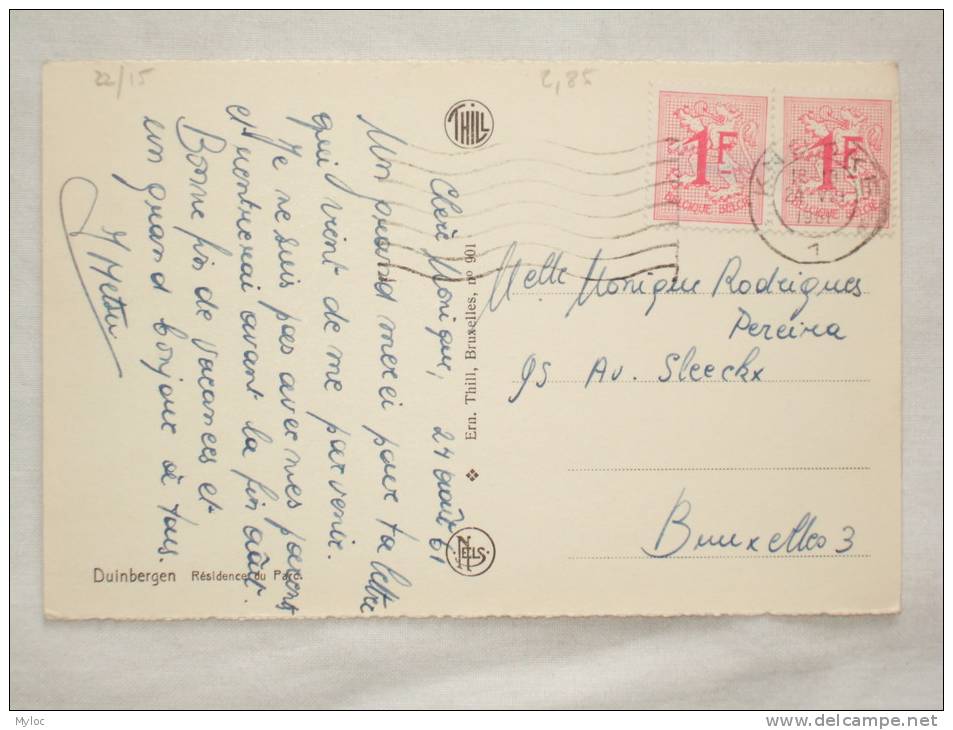 22/15
2,85
THILL
1F
BELGIQUE-BELGIE
1F
BELGIQUE-BELGIE
1
Chère Monique,
24 août 61
Un grand merci pour ta lettre
qui vient de me parvenir.
Je ne suis pas avec mes parents
et rentrerai avant la fin août.
Bonne fin de vacances et
un grand bonjour à tous.
Ern. Thill, Bruxelles, no 901
Melle Monique Rodrigues
Pereira
95 Av. Sleeckx
Bruxelles 3
NELS
Duinbergen Résidence du Parc.
Myloc
www.delcampe.net